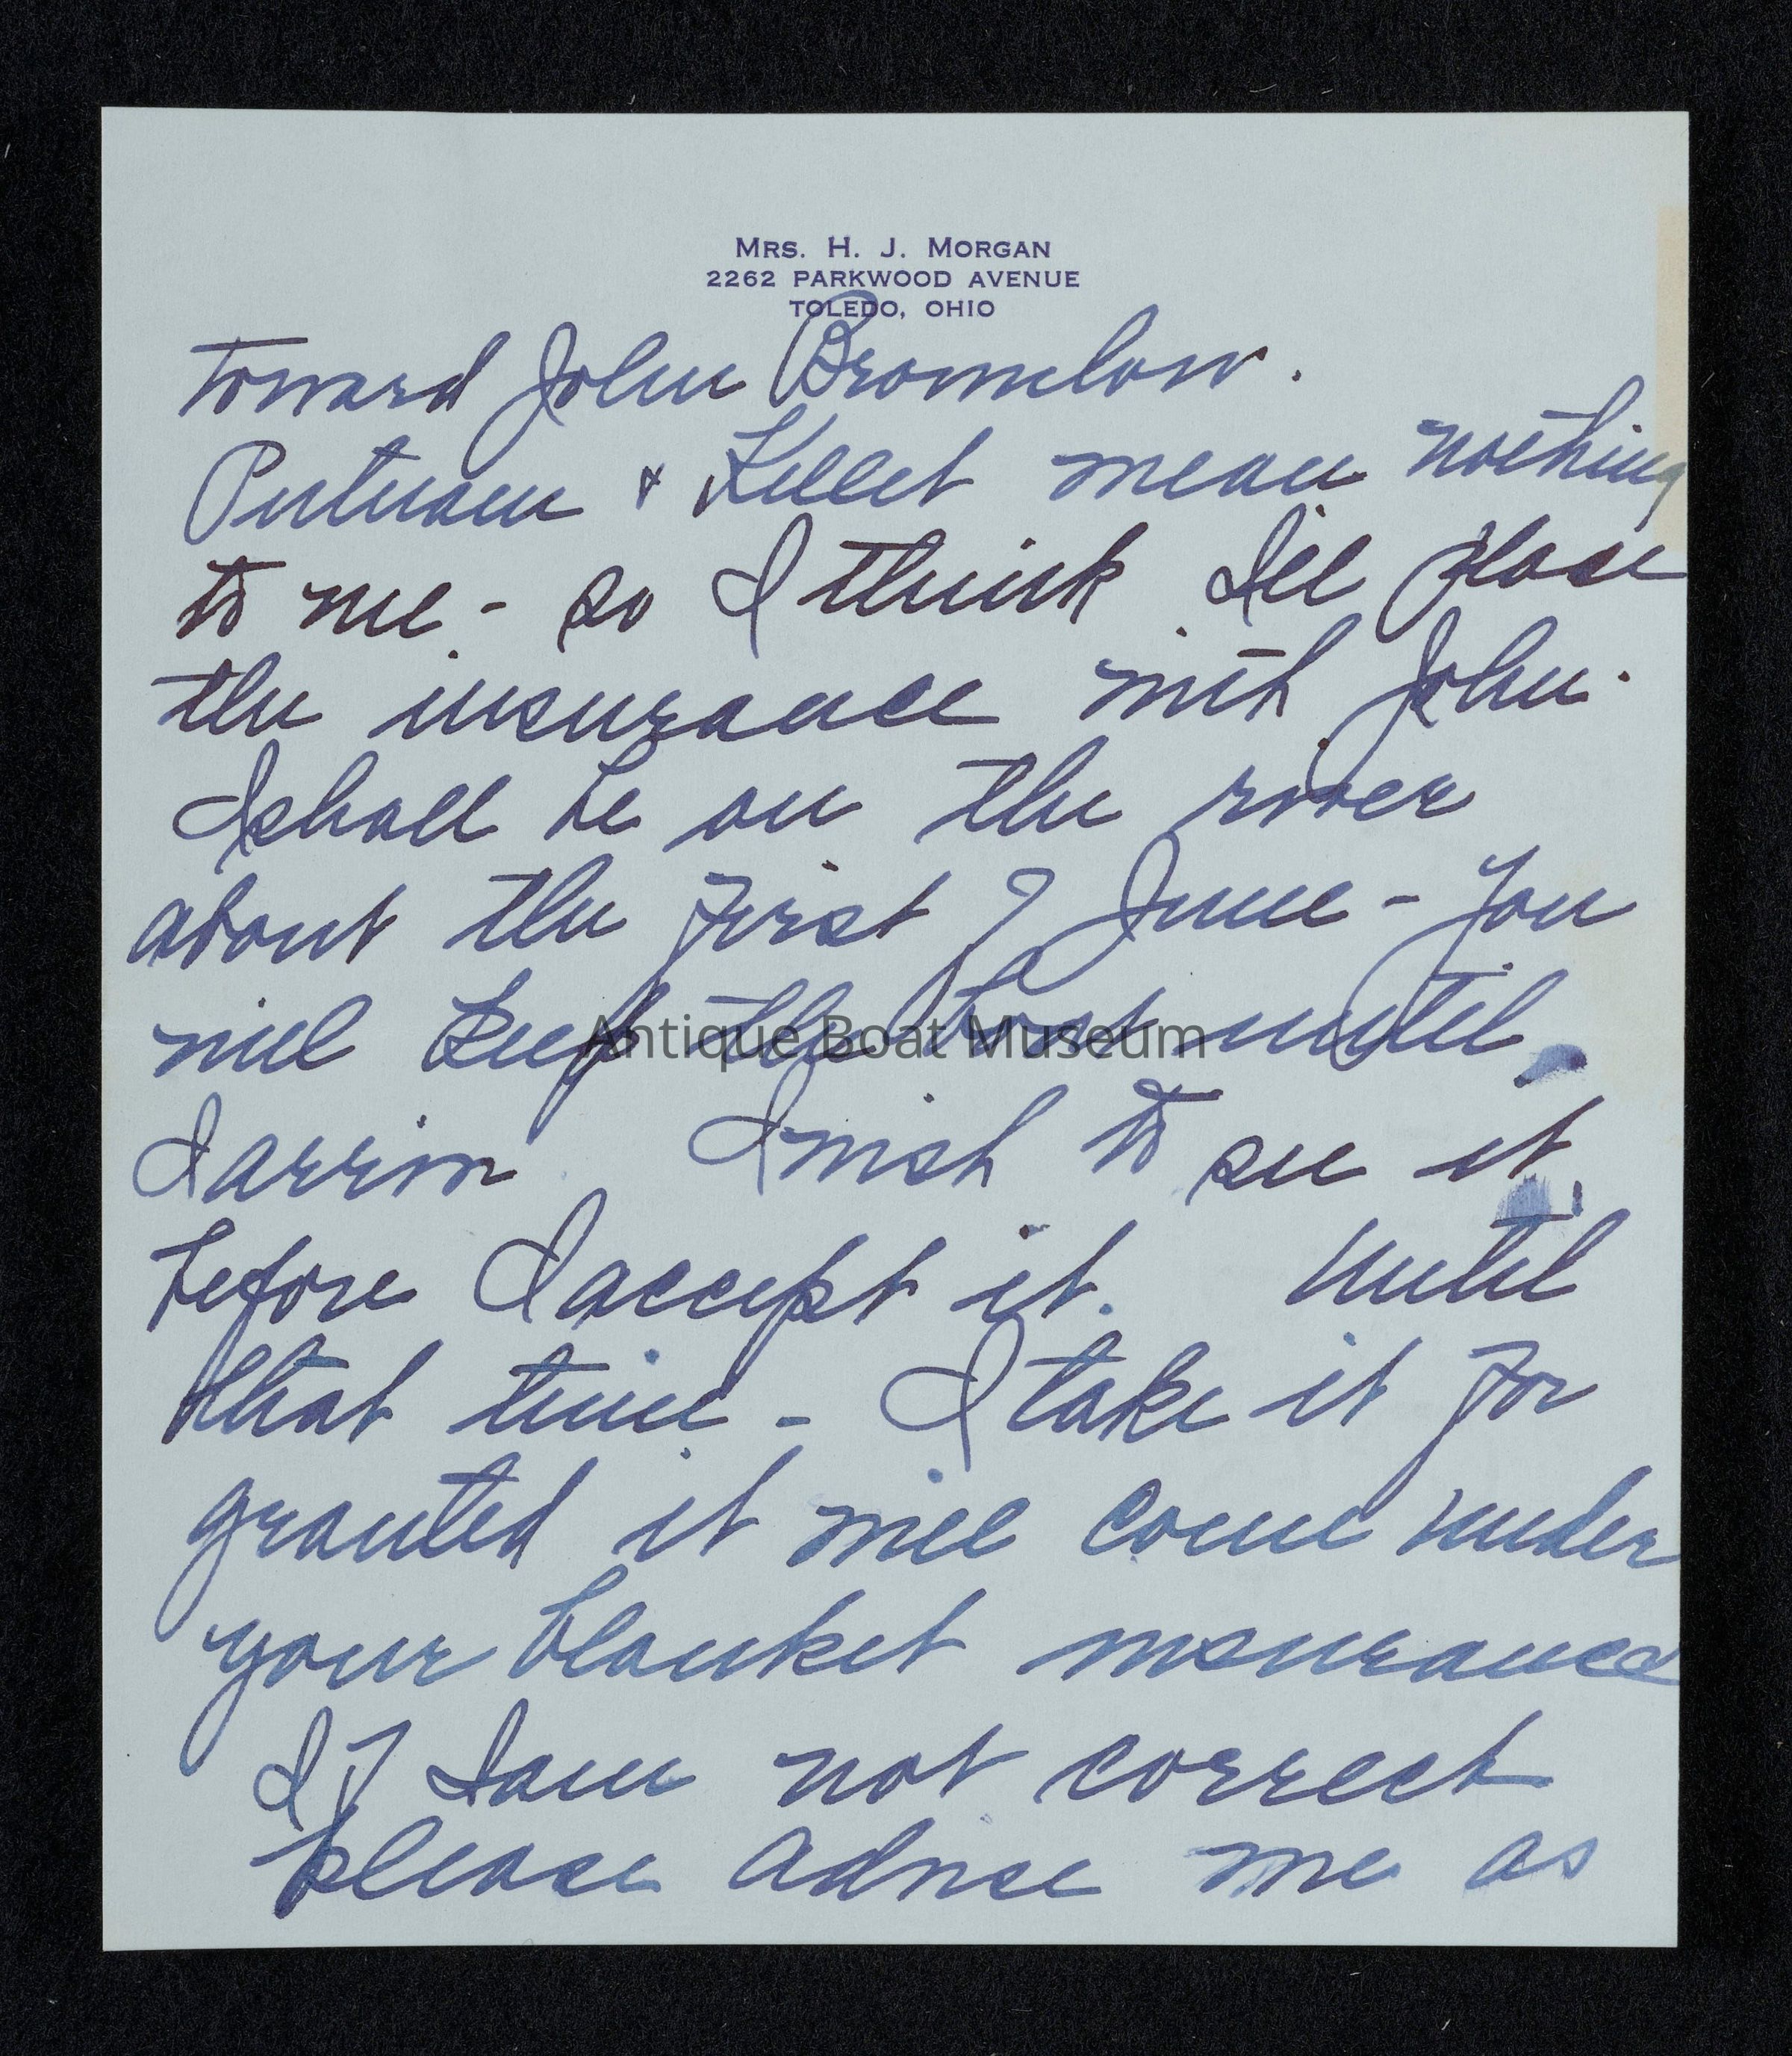 MRS. H. J. MORGAN
2262 PARKWOOD AVENUE
TOLEDO, OHIO
toward John Bromelow.
Putnam & Killet mean nothing
to me - so I think I'll place
the insurance with John.
I shall be on the river
about the first of June - You
will keep the boat until
I arrive I wish to see it
before I accept it. Until
that time - I take it for
granted it will come under
your blanket insurance
If I am not correct
please advise me as
Antique Boat Museum